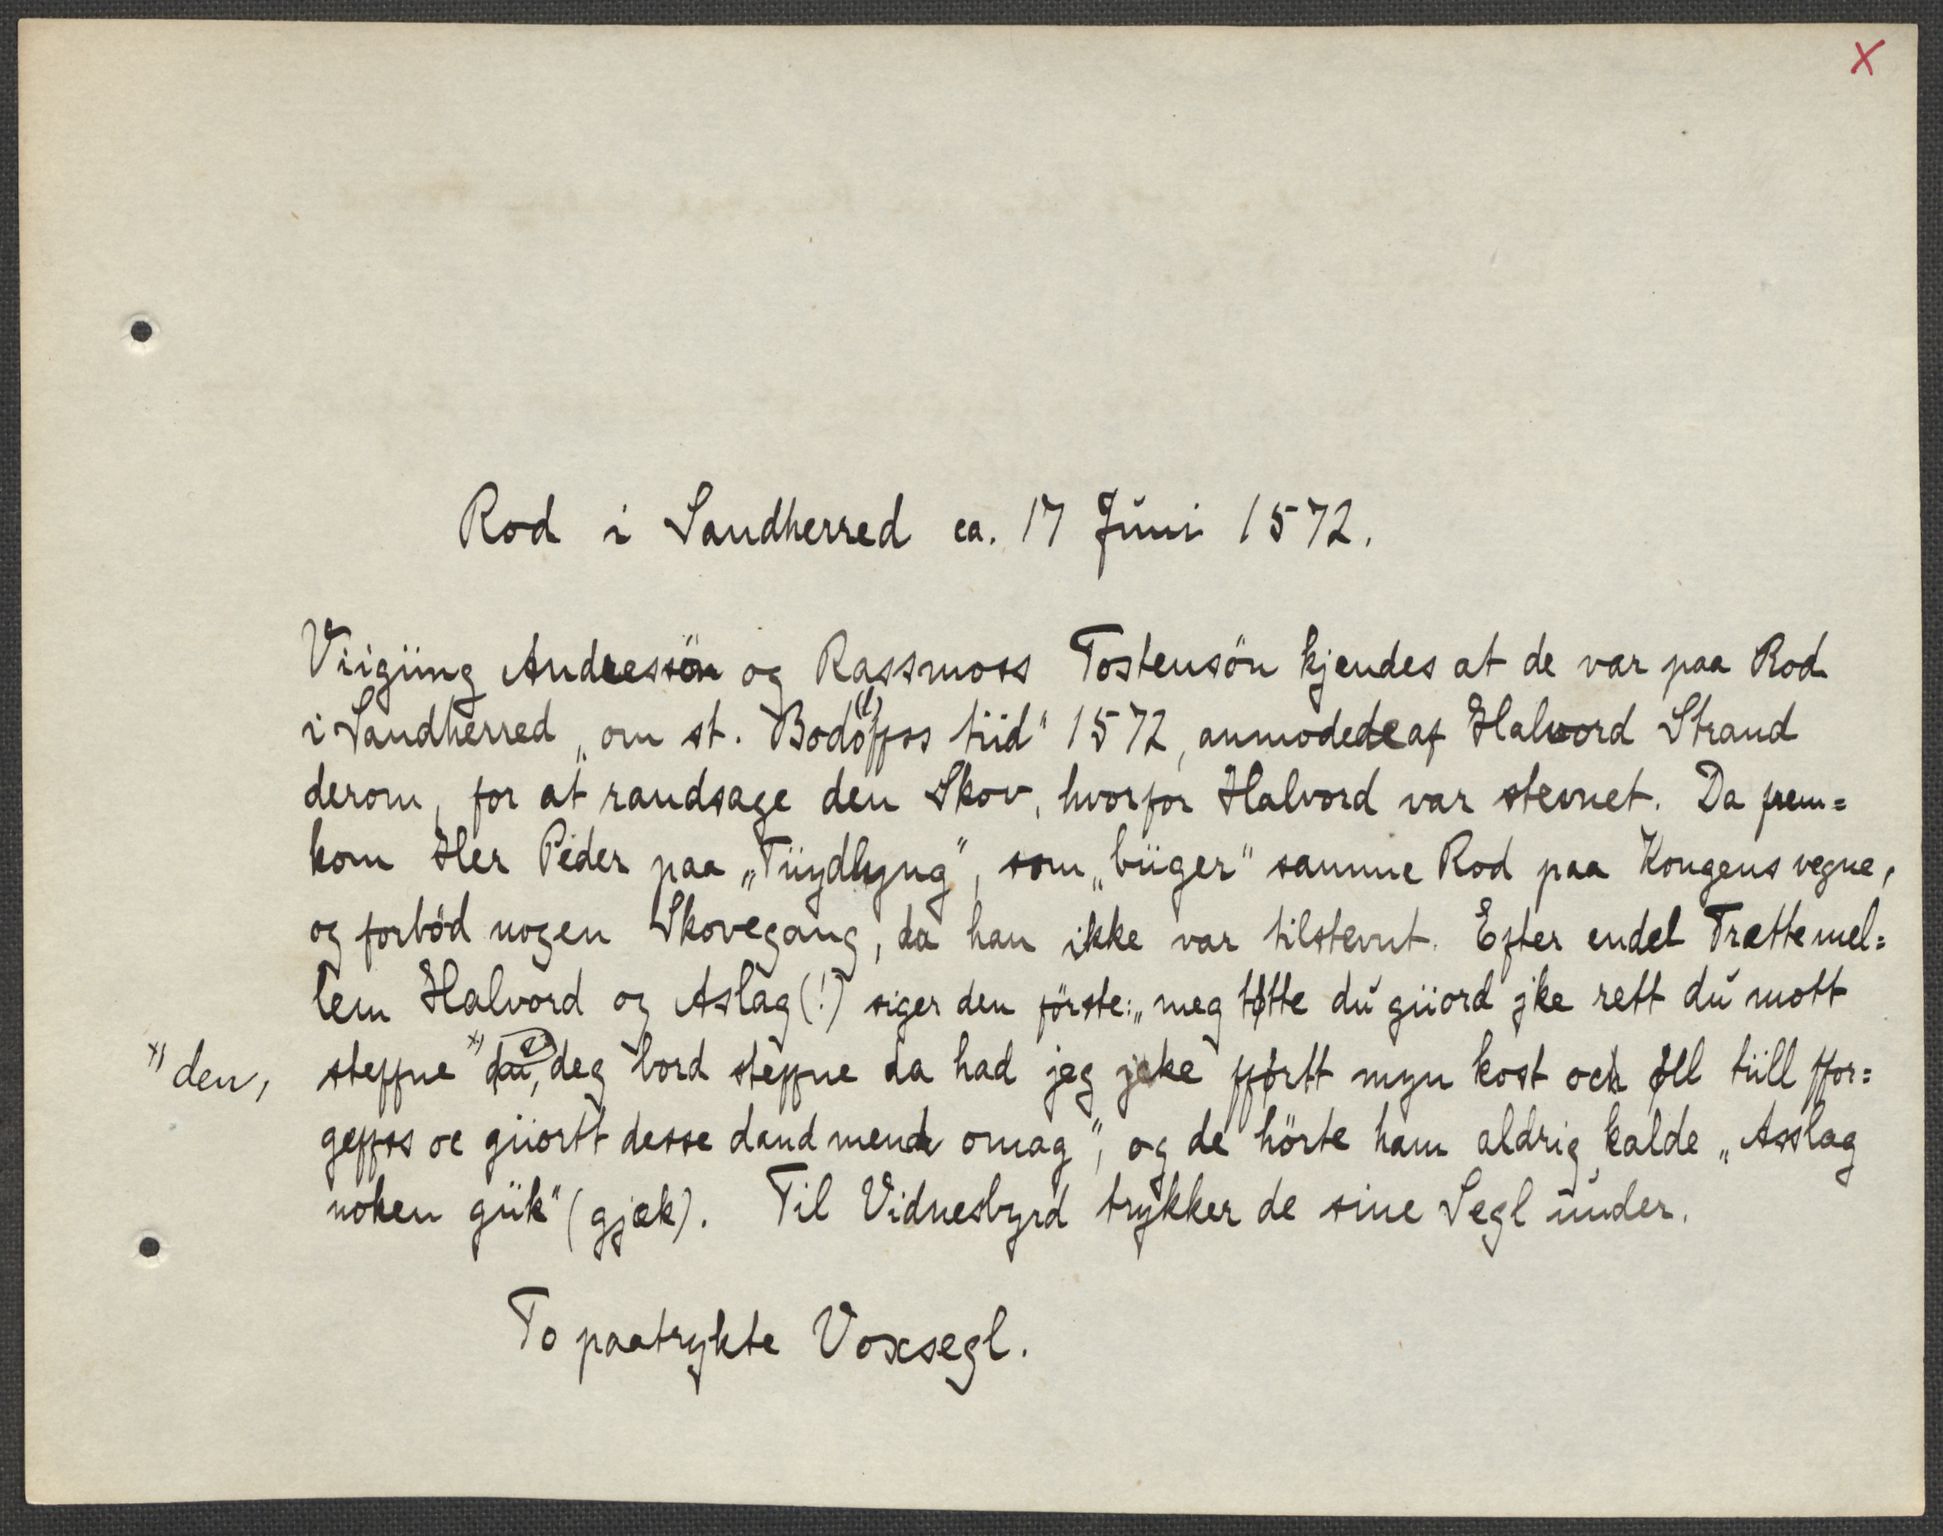 X
Rod i Sandherred ca. 17 Juni 1572.
Viigüng Andressön og Rassmoss Tostensön kjendes at de var paa Rod
i Sandherred „om st. Bodöffss (!) tiid" 1572, anmodede af Halvord Strand
derom, for at randsage den Skov, hvorfor Halvord var stevnet. Da frem=
kom Her Peder paa „Tüydlyng", som „büger" samme Rod paa Kongens vegne,
og forbød nogen Skovegang, da han ikke var tilstevnt. Efter endel Trætte mel=
lem Halvord og Aslag (!) siger den förste: „meg tøtte du giiord jke rett du mott
steffne *) deg bord steffne da had jeg jcke fførtt myn kost och øll tiill ffor=
*) den,
geffss oc giiortt desse dand mend omag", og de hörte ham aldrig kalde „Asslag
noken giik" (gjæk). Til Vidnesbyrd trykker de sine Segl under.
To paatrykte Voxsegl.